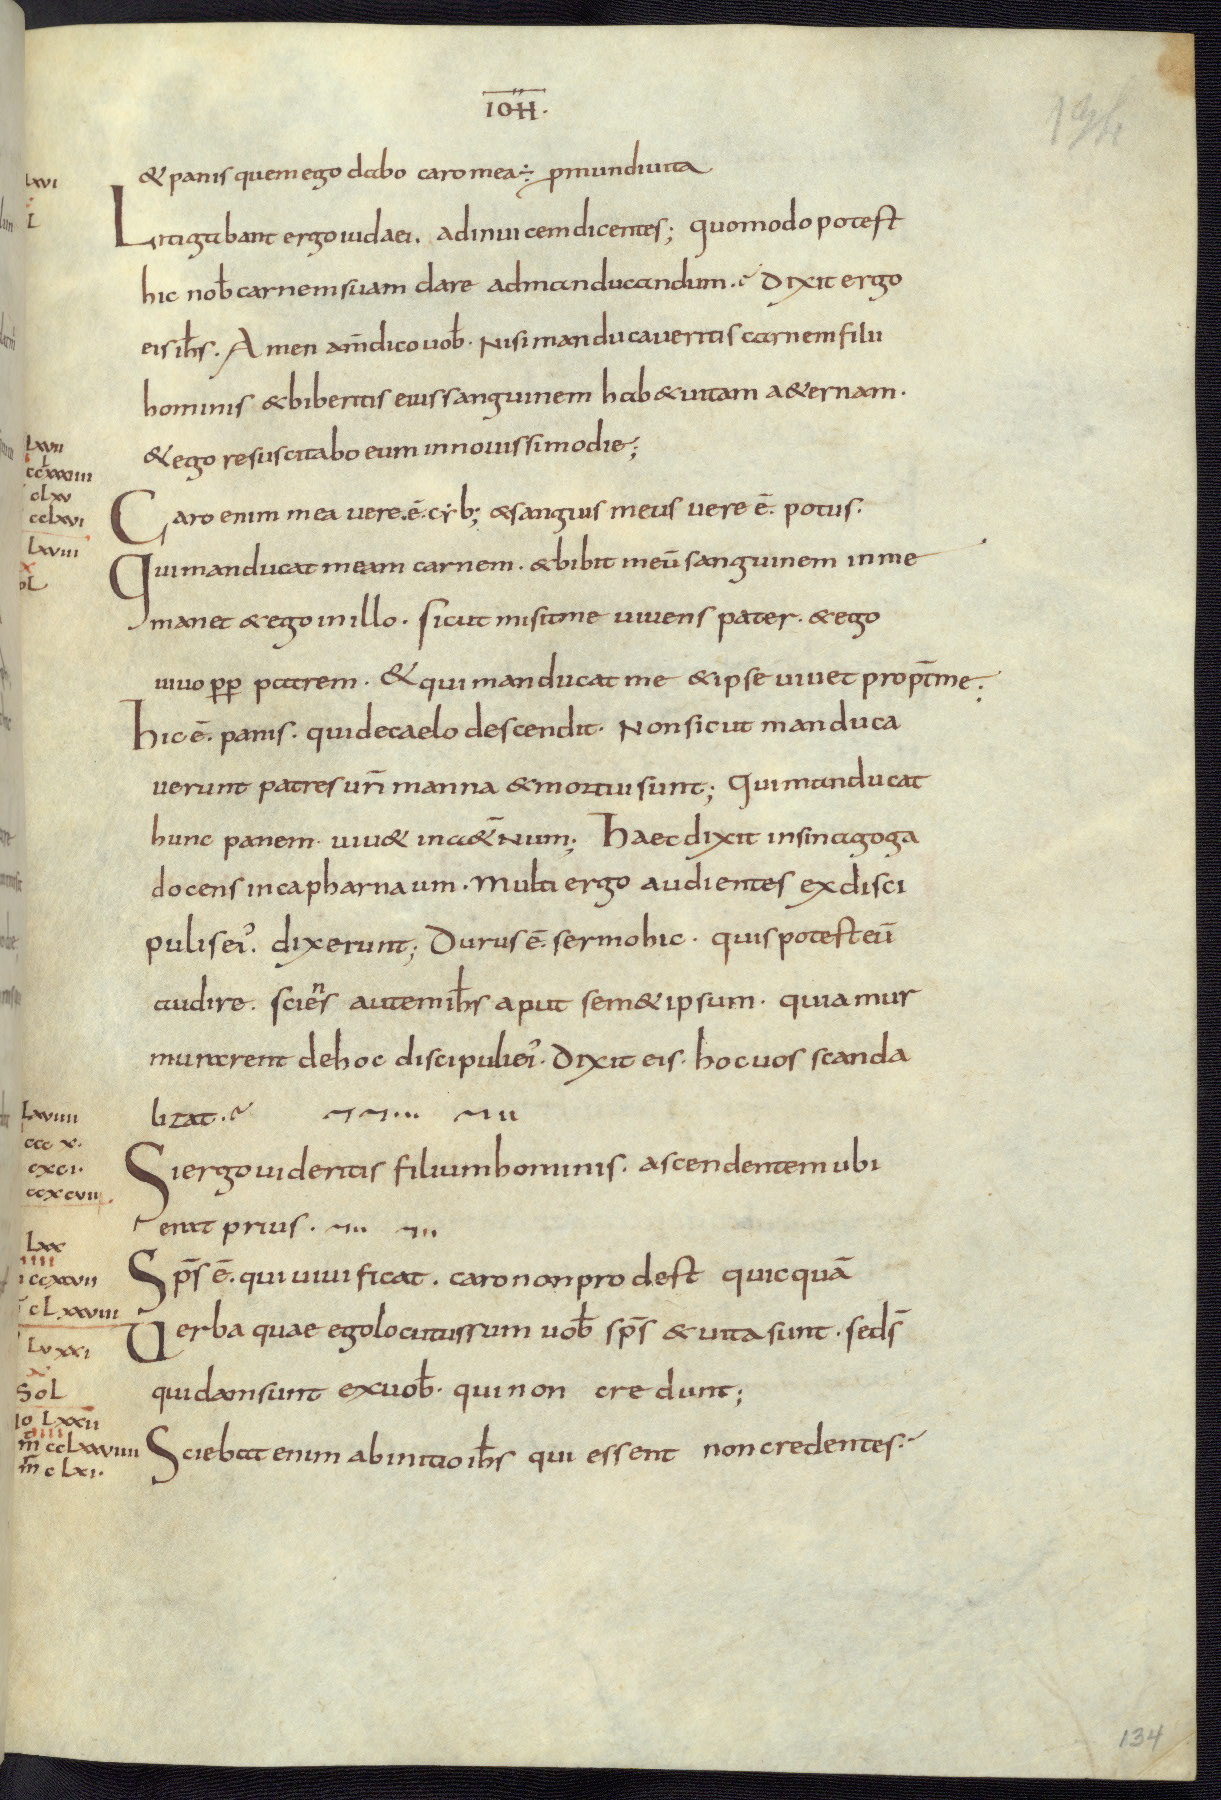 IOH̅.
& panis quem ego dabo caro mea ÷ p mundi uita
Litigabant ergo iudaei. adinuicem dicentes; quomodo potest
hic nob̅ carnem suam dare admanducandum.~ Dixit ergo
eis ih̅s. Amen am̅ dico uob̅. Nisi manducaueritis carnem filii
hominis & biberitis eius sanguinem hab& uitam a&ernam.
& ego resuscitabo eum innouissimo die;
Caro enim mea uere. ē. cyb; & sanguis meus uere ē. potus.
Qui manducat meam carnem. & bibit meū sanguinem in me
manet & ego in illo. sicut misit me uiuens pater. & ego
uiuo pp patrem. & qui manducat me & ipse uiuet prop̅t me.
hic ē. panis. qui de caelo descendit. Non sicut manduca
uerunt patres ur̅i manna & mortui sunt; Qui manducat
hunc panem. uiu& in a&̅Num; haec dixit insinagoga
docens incapharnaum. Multi ergo audientes ex disci
pulis ei'. dixerunt; Durus ē. sermo hic. quis potest eū
audire. scie͛ns autem ih̅s aput sem&ipsum. quia mur
murarent de hoc discipuli ei'. Dixit eis. hoc uos scanda
lizat.~
Si ergo uideritis filium hominis. ascendentem ubi
erat prius.
Sp̅s ē. qui uiuificat. caro non prodest quicquā
Uerba quae ego locutus sum uob̅ sp̅s & uita sunt. seds̅
quidam sunt ex uob̅. qui non credunt;
Sciebat enim ab initio ih̅s qui essent non credentes.
LXVI
L
LXVII
ccLXV
ccLXVI
LXVIII
x
oL
LXVIIII
ccc x.
cxci.
ccxcvii
LXX
ccxxvii
cLxxviii
Lvxxi
x
SoL
Io LXXII
m̅ ccLxxviiii
m̅ cLxi.
134